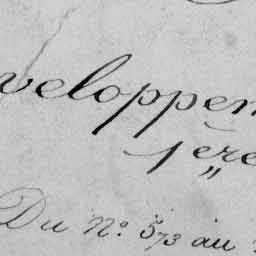 veloppem
1ère
Du No. 573 au